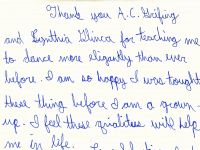 Thank you A.C. Griifing
and Cynthia Glinca for teaching me
to dance more eligantly than ever
before. I am so happy I was tought
these thing before I am a grown-
up. I feel these qualities will help
me in life.